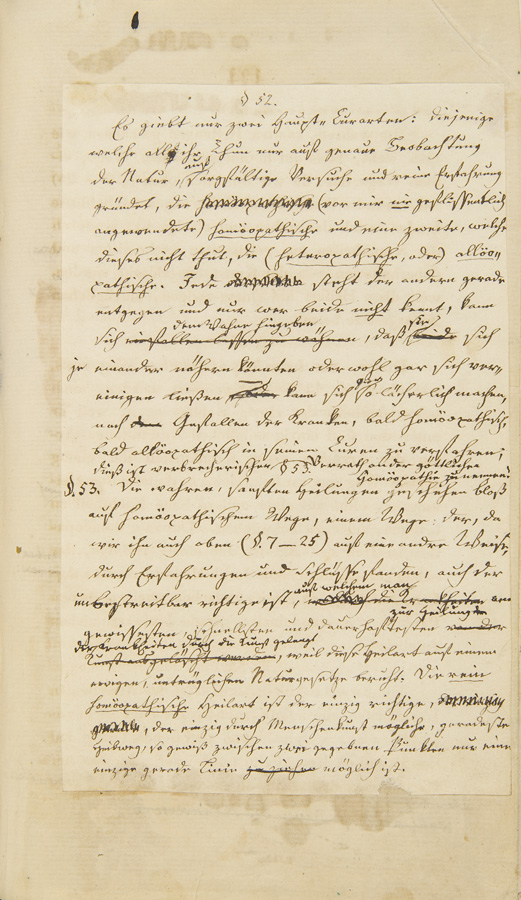 § 52.
Es giebt nur zwei Haupt-Curarten: diejenige
welche all ihr Thun nur auf genaue Beobachtung
der Natur, auf sorgfältige Versuche und reine Erfahrung
gründet, die (vor mir nie geflissentlich
angewendete) homöopathische und eine zweite, welche
dieses nicht thut, die (heteropathische, oder) allöo-
pathische. Jede steht der andern gerade
entgegen und nur wer beide nicht kennt, kann
dem Wahne hingeben
sich einfallen lassen zu wähnen, daß sie beide sich
je einander nähern könnten oder wohl gar sich ver-
einigen ließen, kann sich gar so lächerlich machen,
nach Gefallen der Kranken, bald homöopathisch,
bald allöopathisch in seinen Curen zu verfahren;
dieß ist verbrecherischer Verrath an der göttlichen
Homöopathie zu nennen!
§. 53. Die wahren, sanften Heilungen geschehen bloß
auf homöopathischem Wege, einem Wege, der, da
wir ihn auch oben (§. 7–25) auf eine andre Weise,
durch Erfahrungen und Schlüsse fanden, auch der
unbestreitbar richtige ist, auf welchem man am
gewissesten, schnellsten und dauerhaftesten zur Heilung
der Krankheiten durch die Kunst gelangt
Kunst ausgelöscht werden, weil diese Heilart auf einem
ewigen, untrüglichen Naturgesetze beruht. Die rein
homöopathische Heilart ist der einzig richtige,
der einzig durch Menschenkunst mögliche, geradeste
Heilweg, so gewiß zwischen zwei gegebnen Punkten nur eine
einzige gerade Linie zu ziehen möglich ist.